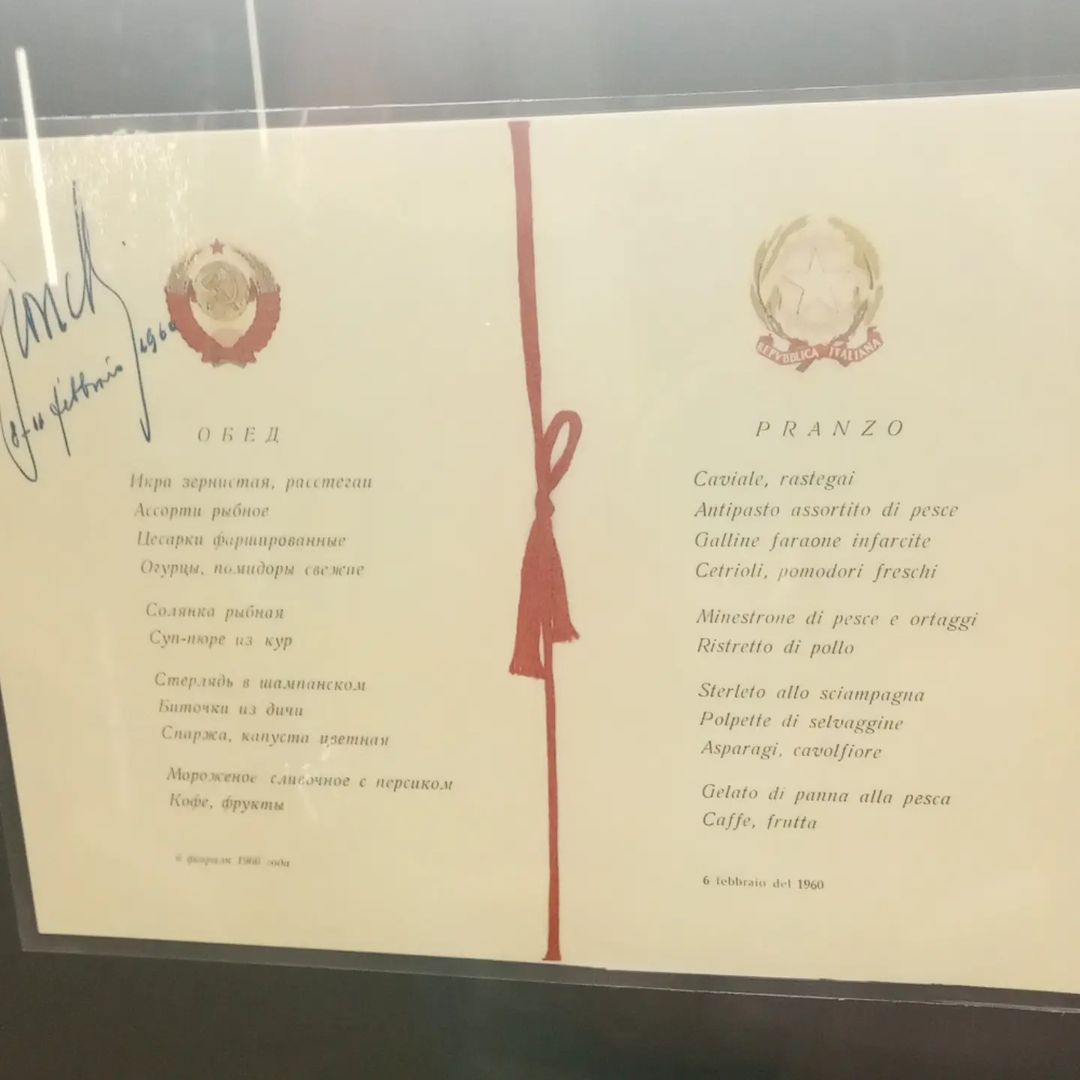 1960
febbraio
ОБЕД
Икра зернистая, расстегаи
Ассорти рыбное
Цесарки фаршированные
Огурцы, помидоры свежие
Солянка рыбная
Суп-пюре из кур
Стерлядь в шампанском
Биточки из дичи
Спаржа, капуста цветная
Мороженое сливочное с персиком
Кофе, фрукты
6 февраля 1960 года
REPVBBLICA ITALIANA
PRANZO
Caviale, rastegai
Antipasto assortito di pesce
Galline faraone infarcite
Cetrioli, pomodori freschi
Minestrone di pesce e ortaggi
Ristretto di pollo
Sterleto allo sciampagna
Polpette di selvaggine
Asparagi, cavolfiore
Gelato di panna alla pesca
Caffe, frutta
6 febbraio del 1960